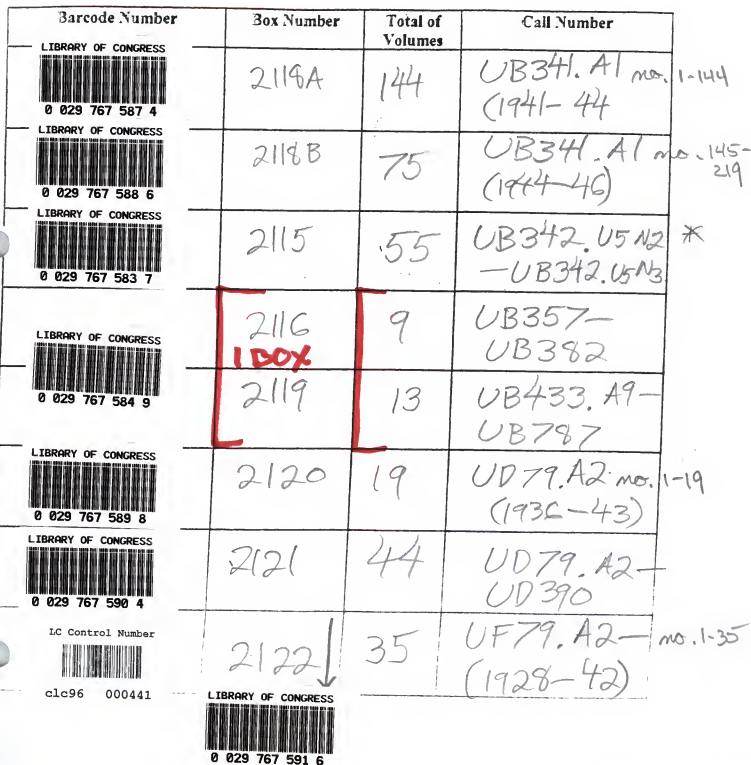 Barcode Number Box Number Total of Volumes Call Number
LIBRARY OF CONGRESS
0 029 767 587 4
2118A 144 UB341. A1 no. 1-144
(1941- 44
LIBRARY OF CONGRESS
0 029 767 588 6
2118B 75 UB341. A1 no. 145-
219
(1944-46)
LIBRARY OF CONGRESS
0 029 767 583 7
2115 55 UB342. U5 N2 *
-UB342. U5 N3
LIBRARY OF CONGRESS
0 029 767 584 9
2116 9 UB357-
1 BOX UB382
2119 13 UB433. A9-
UB787
LIBRARY OF CONGRESS
0 029 767 589 8
2120 19 UD79. A2 no. 1-19
(1936-43)
LIBRARY OF CONGRESS
0 029 767 590 4
2121 44 UD79. A2-
UD390
LC Control Number
clc96 000441
2122 35 UF79. A2- no. 1-35
(1928-42)
LIBRARY OF CONGRESS
0 029 767 591 6